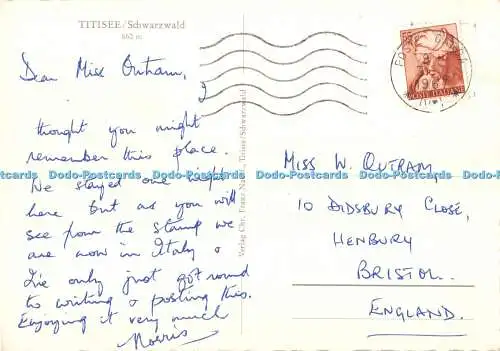 TITISEE/Schwarzwald
862 m
Dear Miss Outram, I
thought you might
remember this place.
We stayed one night
here but as you will
see from the stamp we
are now in Italy &
I've only just got round
to writing & posting this.
Enjoying it very much
Norris
Verlag Chr. Franz Titisee/Schwarzwald
POSTE ITALIANE
MISS W. OUTRAM
10 DIDSBURY CLOSE,
HENBURY
BRISTOL.
ENGLAND.
Dodo-Postcards Dodo-Postcards Dodo-Postcards Dodo-Postcards